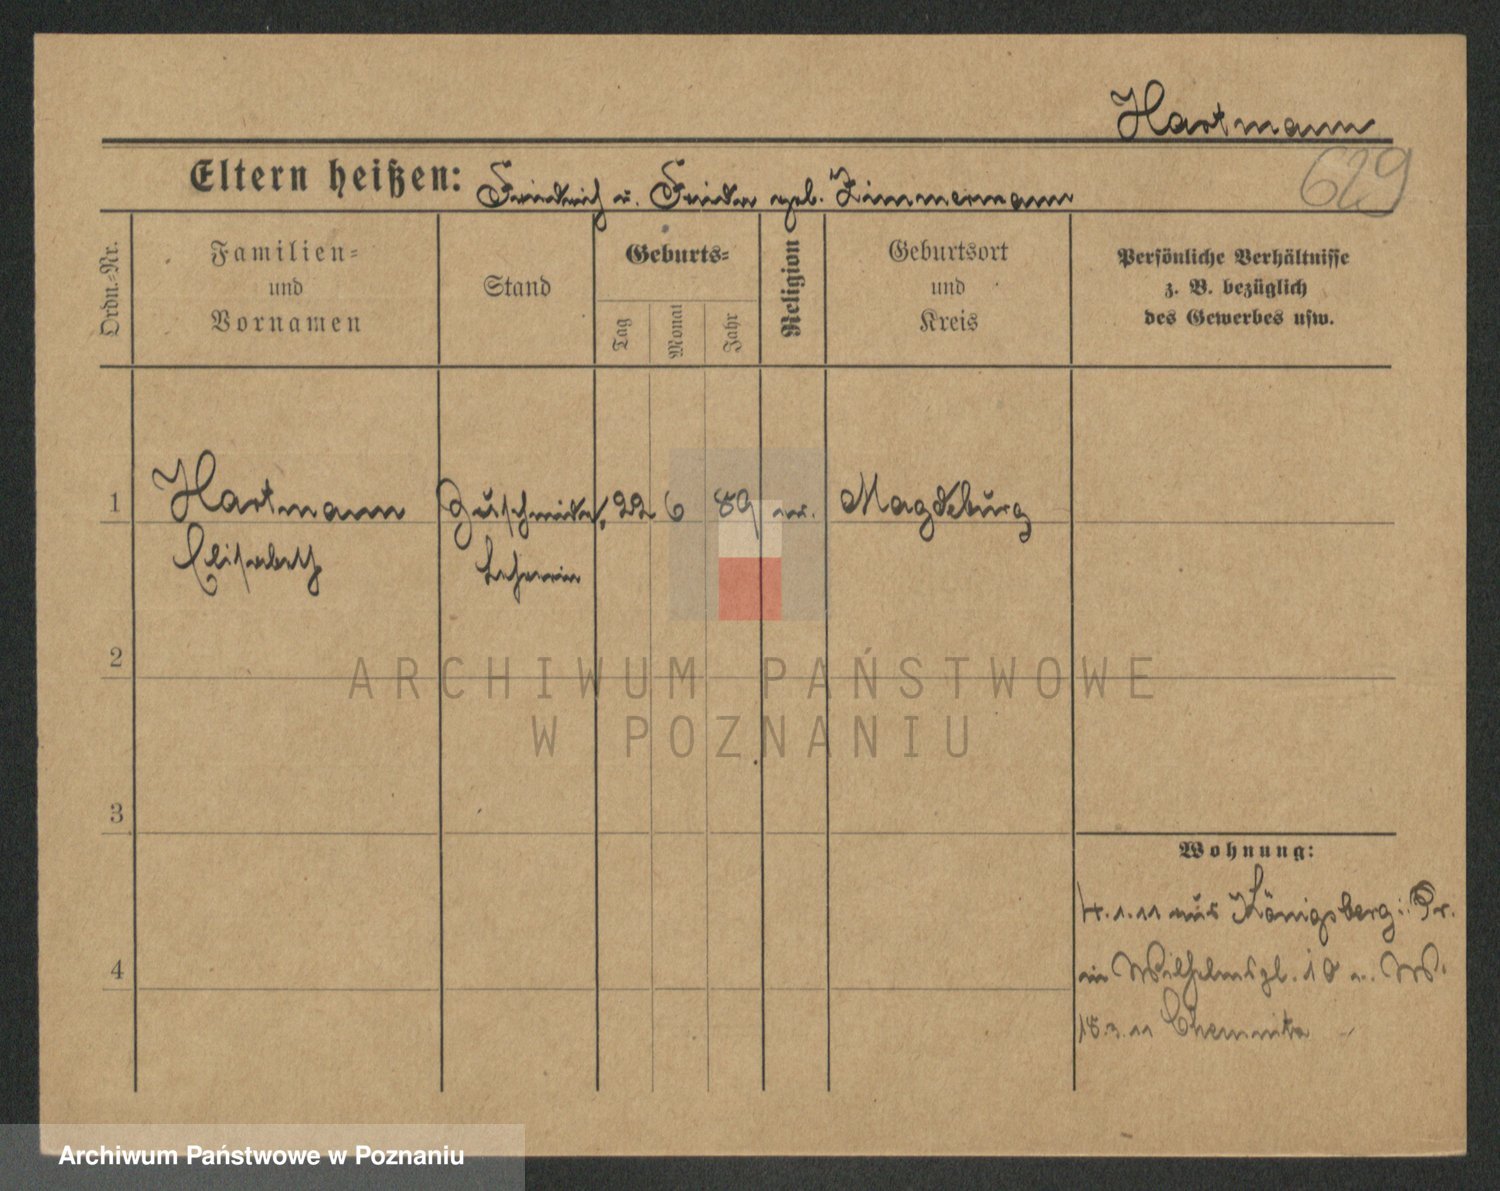 Hartmann
629
Eltern heißen: Friedrich u. Frieda geb. Zimmermann
Ordn.-Nr.
Familien-
und
Vornamen
Stand
Geburts-
Tag
Monat
Jahr
Religion
Geburtsort
und
Kreis
Persönliche Verhältnisse
z. B. bezüglich
des Gewerbes usw.
1 Hartmann Zuschneide- 22 6 89 Magdeburg
Elisabeth Lehrerin
2
ARCHIWUM PAŃSTWOWE
W POZNANIU
3
Wohnung:
4.1.11 aus Königsberg i. Pr.
4
in Wilhelmspl. 18
18.3.11 Chemnitz
Archiwum Państwowe w Poznaniu